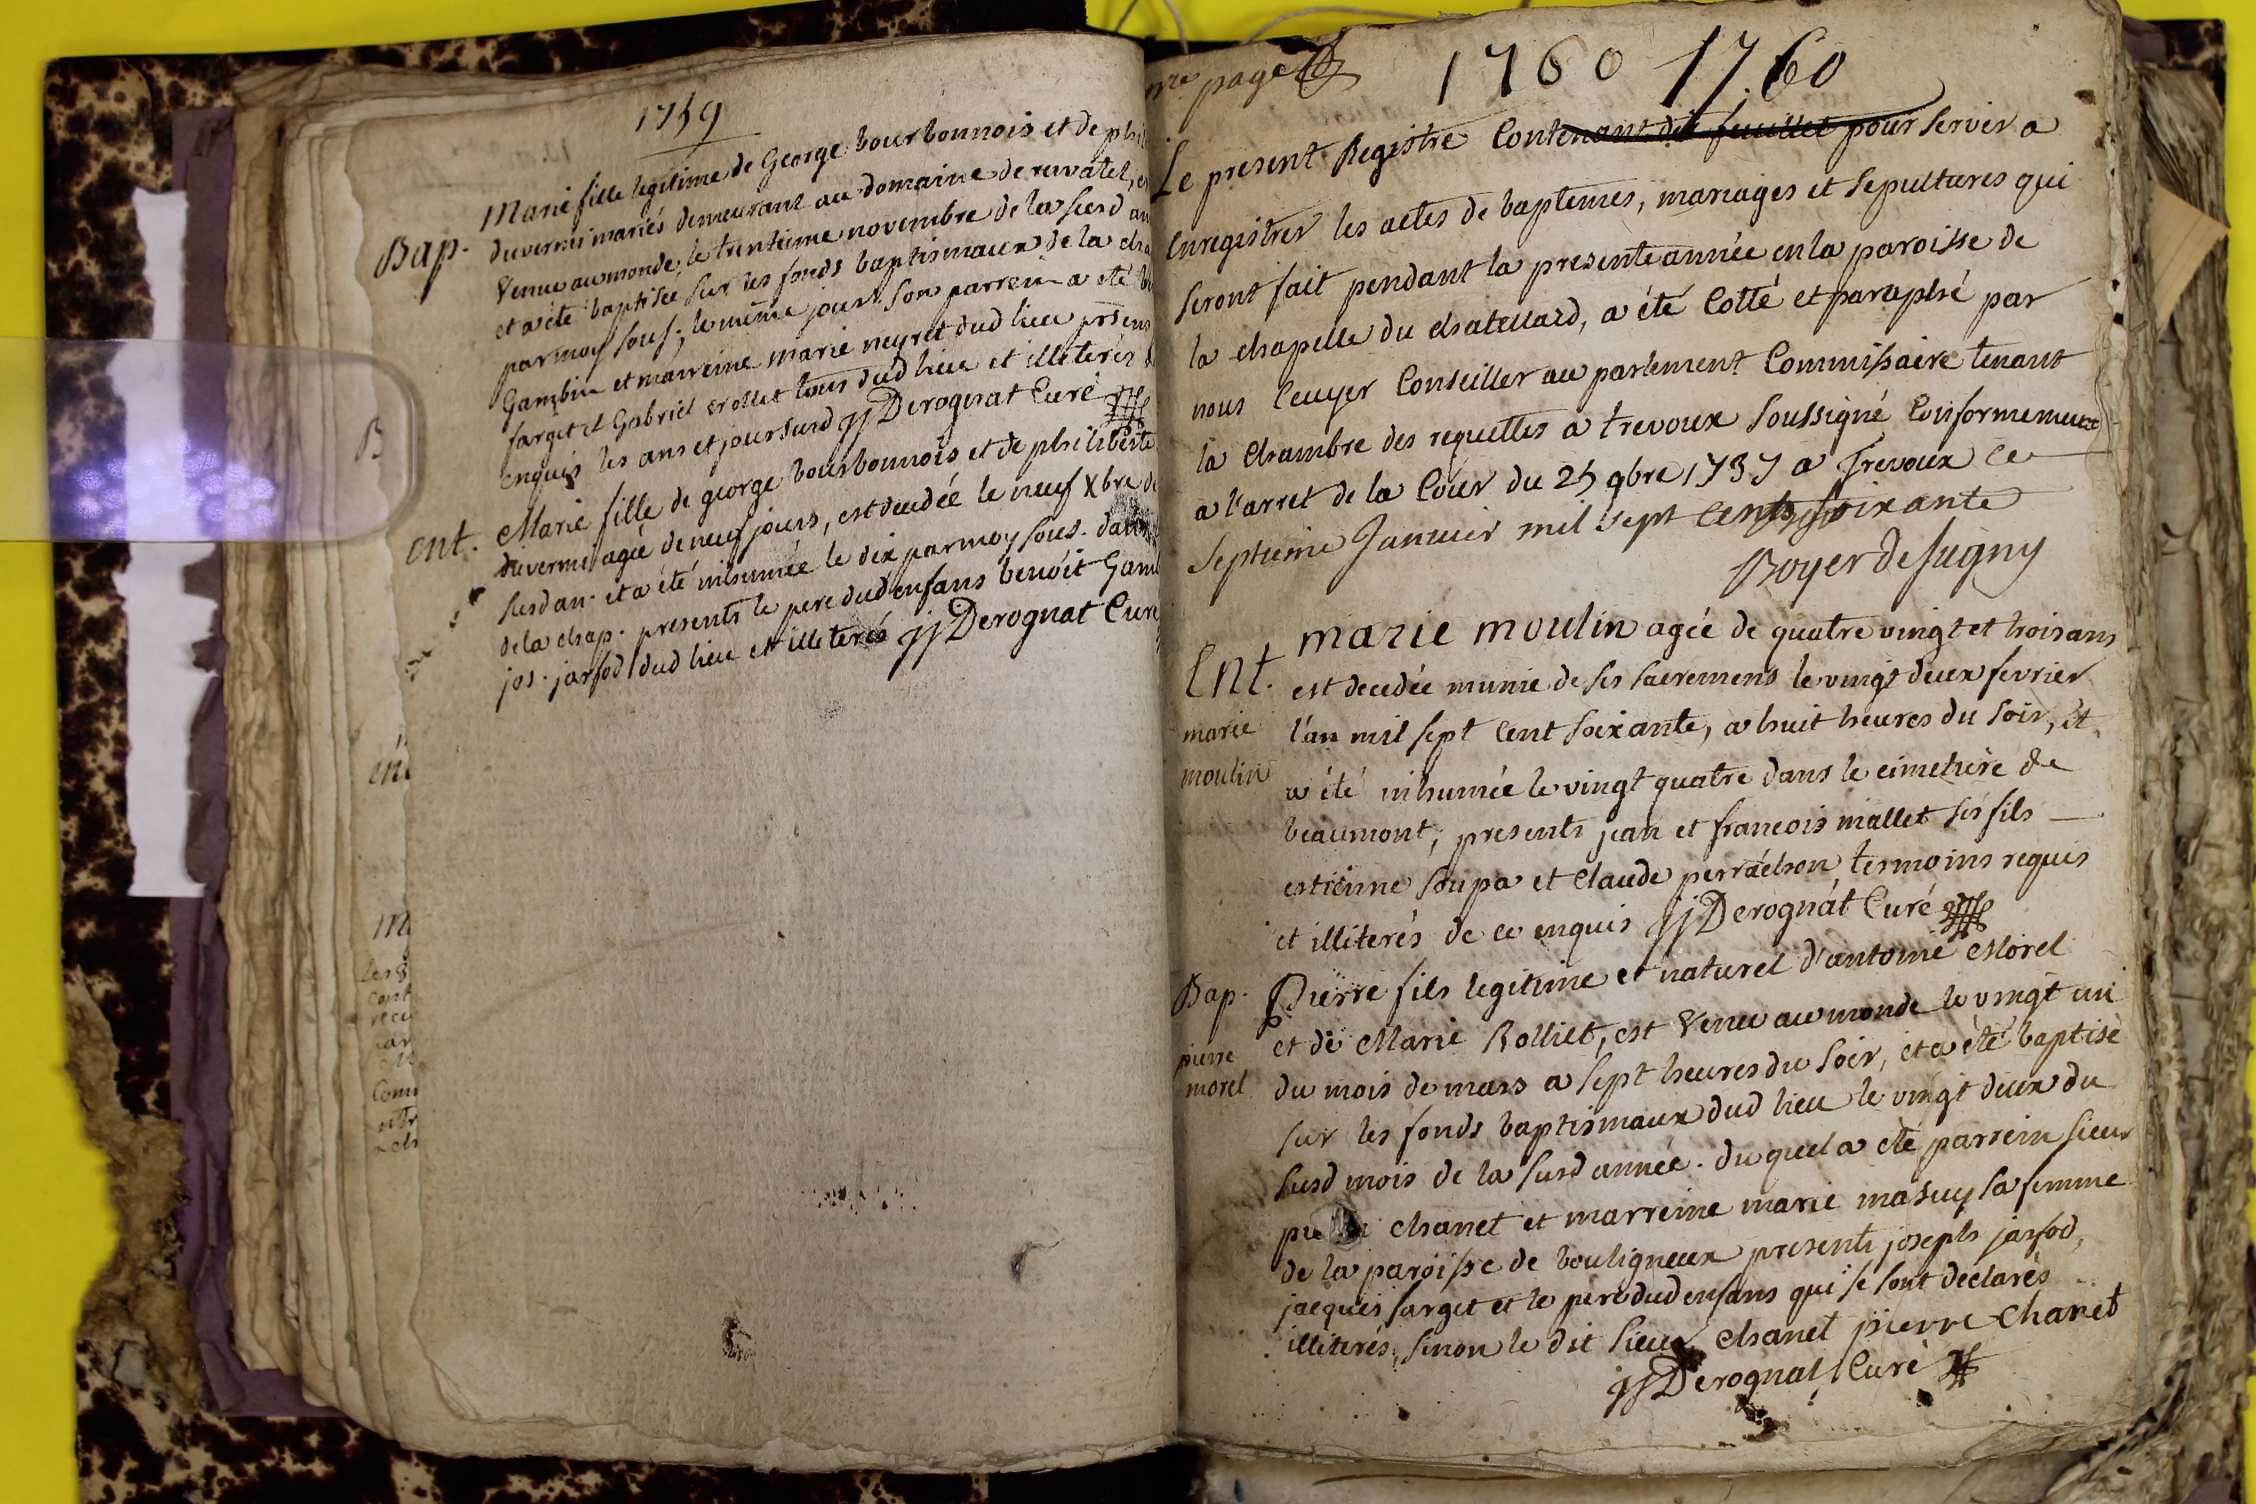 1759
Bap.
Marie fille legitime de George bourbonnois et de phil
duvernis mariés demeurant au domaine de ruvatel, e
Venue au monde, le trentieme novembre de la susd an
et a été baptisée sur les fonds baptismaux de la cha
par moy sous; le même jour. son parrein a été b
Gambin et marreine marie neyret dud lieu presens
farget et Gabriel erollet tous dud lieu et illiterés
enquis les ans et jour susd jj Derognat Curé
ent.
Marie fille de george bourbonnois et de philiberte
duvernis agée de neuf jours, est decedée le neuf Xbre de
susd an. et a été inhumée le dix par moy sous. dans
de la chap. presents le pere dud enfans benoit Gamb
jos. jarfod dud lieu et illiterés jj Derognat Curé
B
en
m
page
1760 1760
Le present Registre Contenant dix feuillet pour servir a
enregistrer les actes de baptemes, mariages et sepultures qui
seront fait pendant la presente année en la paroisse de
la chapelle du chatellard, a été Cotté et paraphé par
nous Ecuyer Conseiller au parlement Commissaire tenant
la Chambre des requettes a trevoux soussigné Conformement
a l'arret de la Cour du 25 9bre 1737 a Trevoux ce
septieme Janvier mil sept cents soixante
Boyer de sugny
Ent.
marie
moulin
marie moulin agée de quatre vingt et trois ans
est decedée munie de ses sacremens le vingt deux fevrier
l'an mil sept cent soixante, a huit heures du soir, et
a été inhumée le vingt quatre dans le cimetiere de
beaumont, presents jean et francois mallet ses fils
estienne soupa et Claude perrachon temoins requis
et illiterés de ce enquis jj Derognat Curé
Bap.
pierre
morel
Pierre fils legitime et naturel d'antoine Morel
et de Marie Rolliet, est Venu au monde le vingt un
du mois de mars a sept heures du soir, et a été baptisé
sur les fonds baptismaux dud lieu le vingt deux du
susd mois de la susd année. du quel a été parrein sieur
chanet et marreine marie masuy sa femme
de la paroisse de bouligneux presents joseph jarfod,
jacques farget et le pere dud enfans qui se sont declarés
illiterés, sinon le dit sieur chanet pierre Chanet
jj Derognat Curé